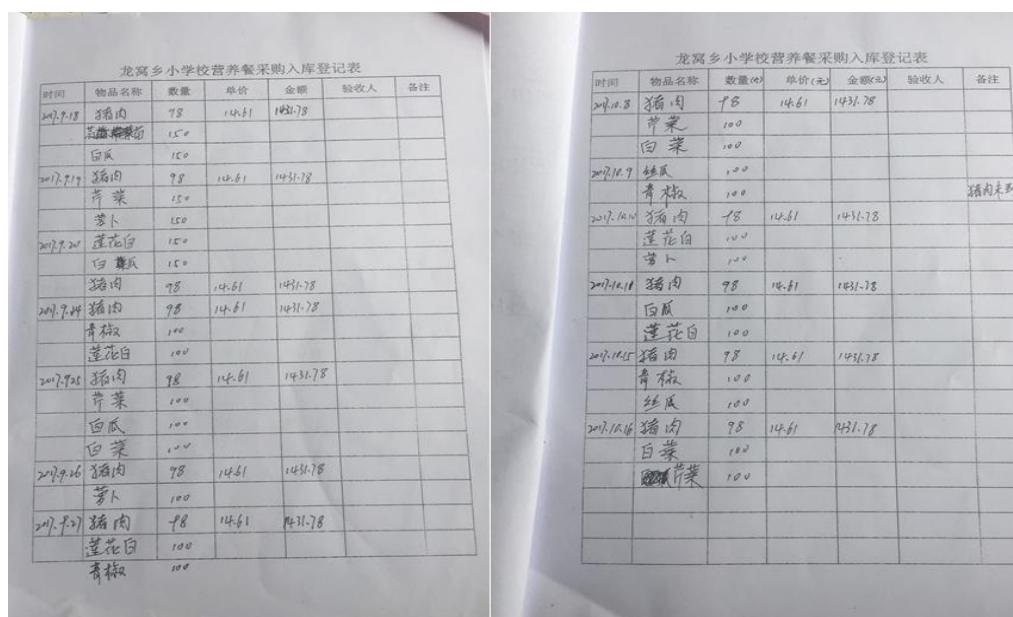 龙窝乡小学校营养餐采购入库登记表
时间 物品名称 数量 单价 金额 验收人 备注
2017.9.18 猪肉 98 14.61 1431.78
150
白瓜 150
2017.9.19 猪肉 98 14.61 1431.78
芹菜 150
萝卜 150
2017.9.20 莲花白 150
白瓜 150
猪肉 98 14.61 1431.78
2017.9.24 猪肉 98 14.61 1431.78
青椒 100
莲花白 100
2017.9.25 猪肉 98 14.61 1431.78
芹菜 100
白瓜 100
白菜 100
2017.9.26 猪肉 98 14.61 1431.78
萝卜 100
2017.9.27 猪肉 98 14.61 1431.78
莲花白 100
青椒 100
龙窝乡小学校营养餐采购入库登记表
时间 物品名称 数量(斤) 单价(元) 金额(元) 验收人 备注
2017.10.8 猪肉 98 14.61 1431.78
芹菜 100
白菜 100
2017.10.9 丝瓜 100
青椒 100 猪肉未
2017.10.10 猪肉 98 14.61 1431.78
莲花白 100
萝卜 100
猪肉 98 14.61 1431.78
白瓜 100
莲花白 100
2017.10.15 猪肉 98 14.61 1431.78
青椒 100
丝瓜 100
2017.10.16 猪肉 98 14.61 1431.78
白菜 100
芹菜 100